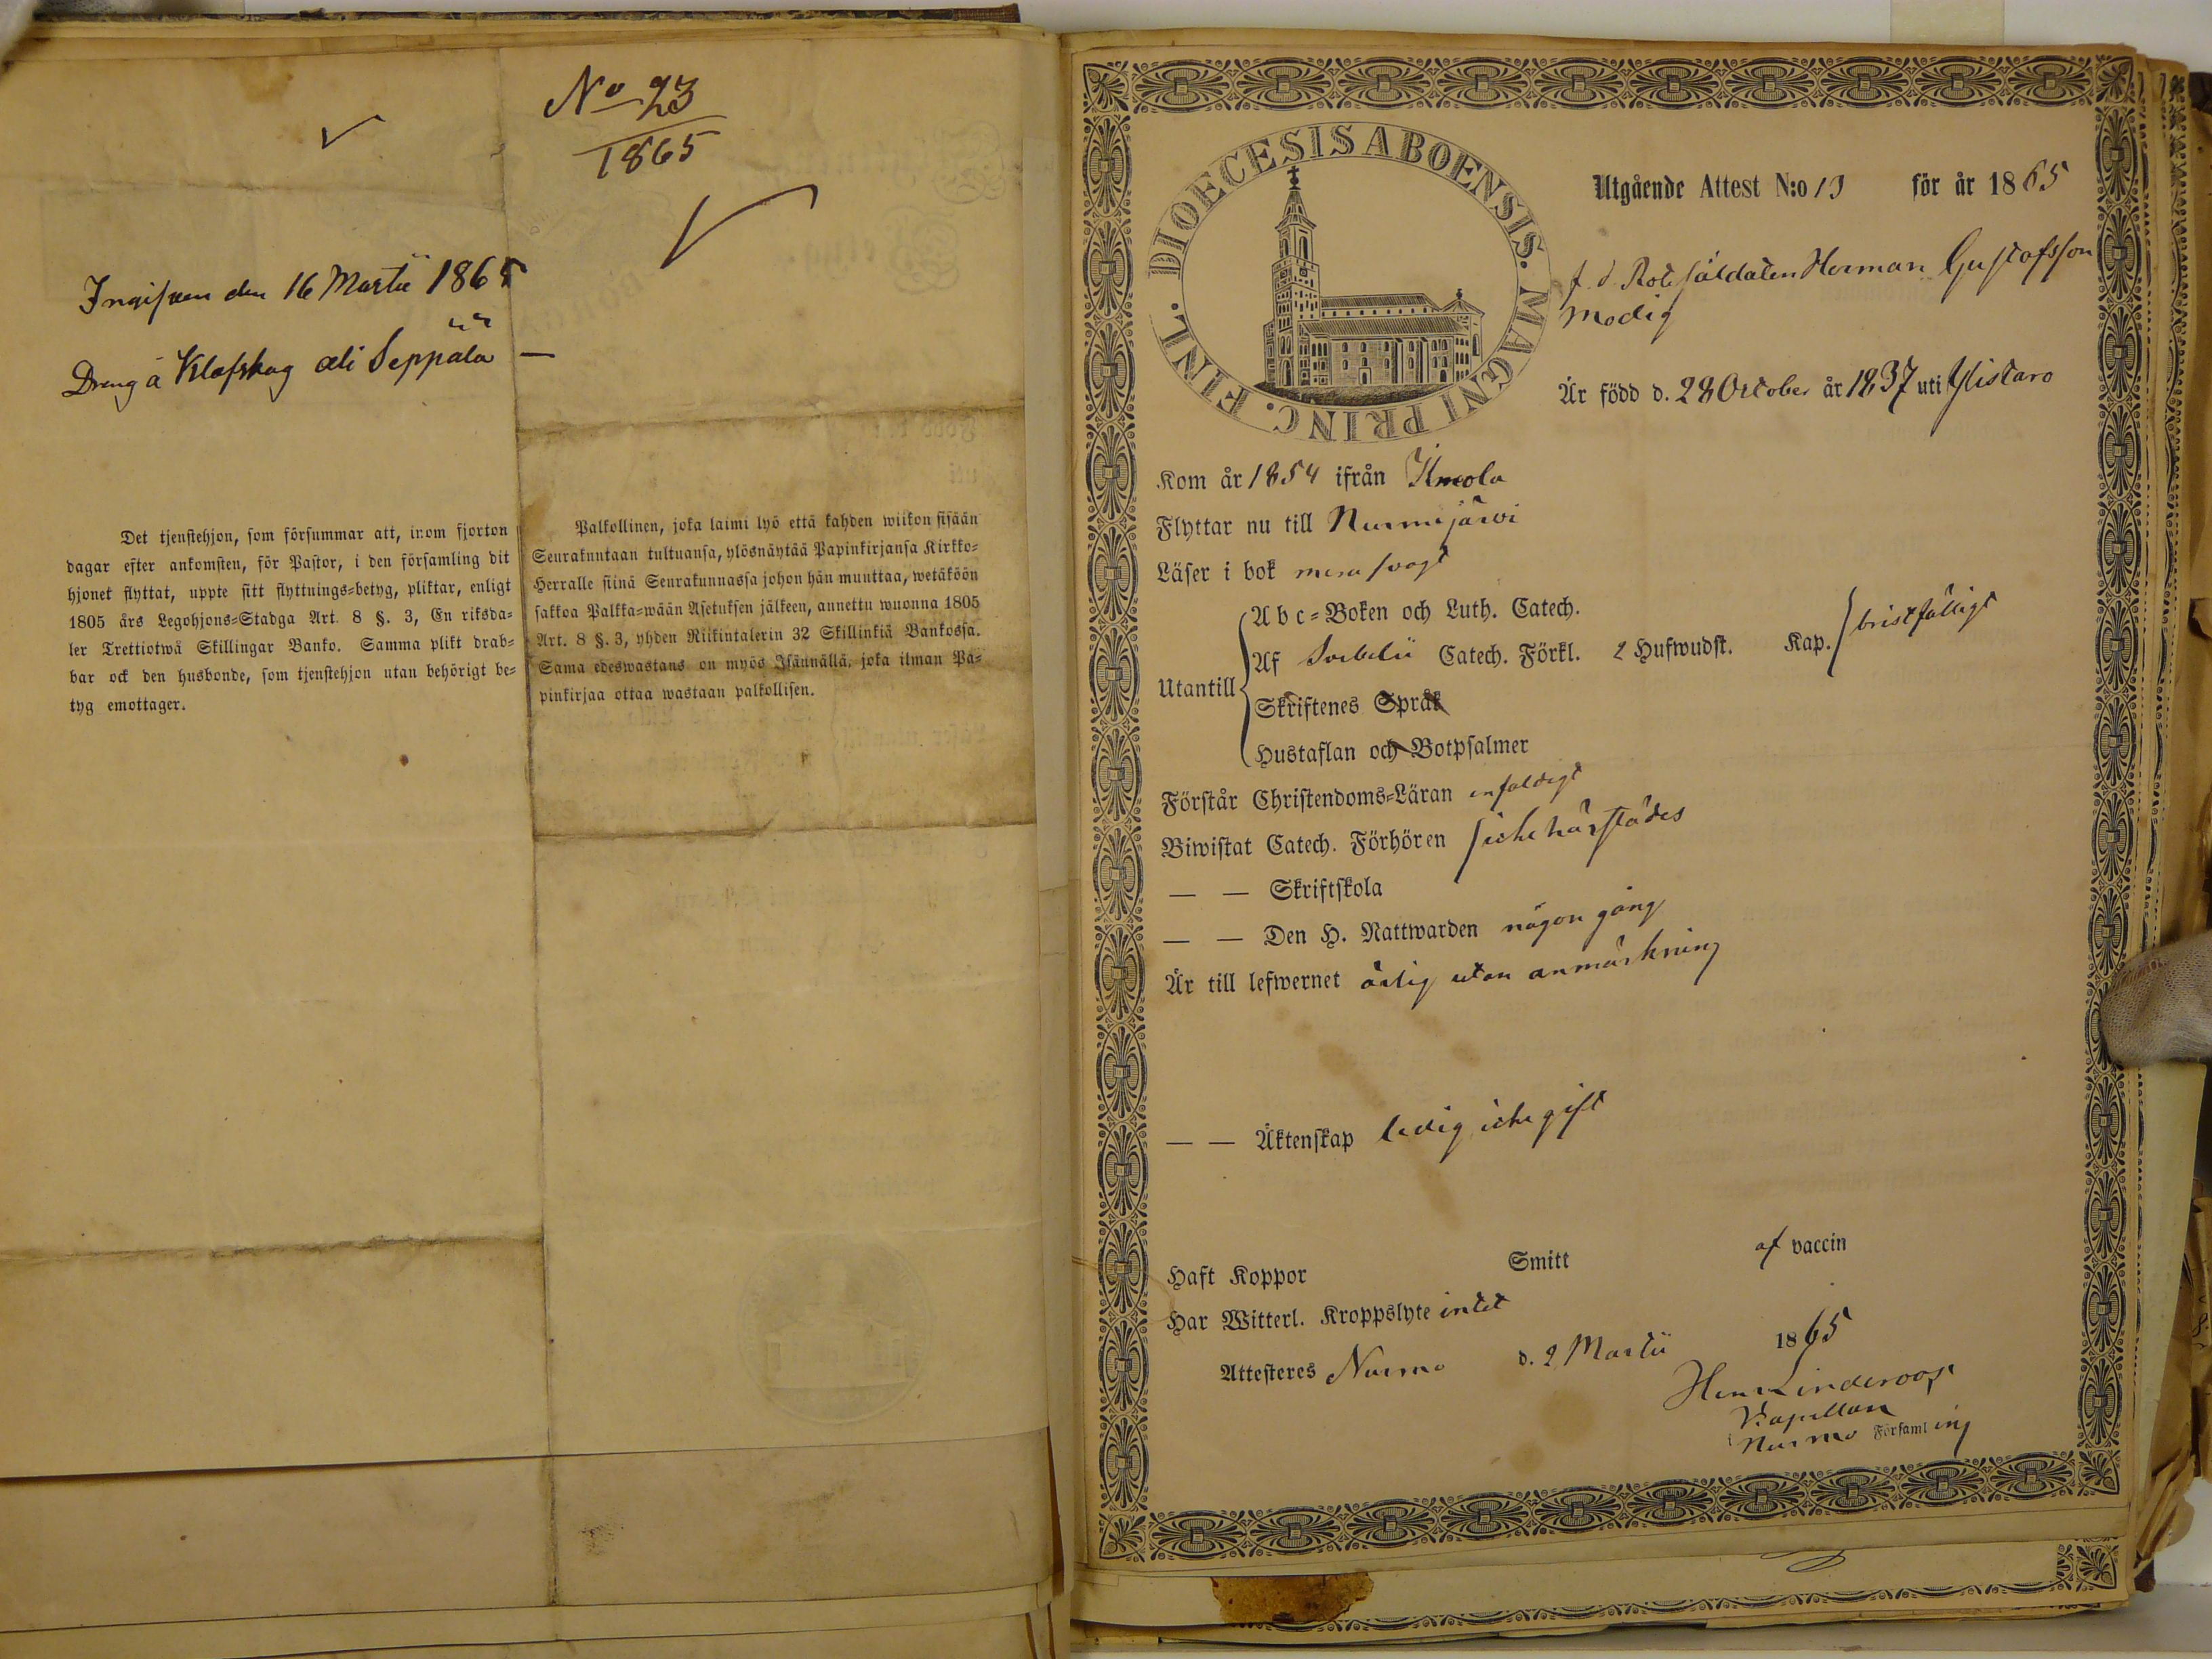 No 23
1865
Ingifven den 16 Martii 1865
Dreng å Klafskog eli Seppälä —
Det tjenstehjon, som försummar att, inom fjorton
dagar efter ankomsten, för Pastor, i den församling dit
hjonet flyttat, uppte sitt flyttnings=betyg, pliktar, enligt
1805 års Legohjons=Stadga Art. 8 §. 3, En riksda=
ler Trettiotwå Skillingar Banko. Samma plikt drab=
bar ock den husbonde, som tjenstehjon utan behörigt be=
tyg emottager.
Palkollinen, joka laimi lyö että kahden wiikon sisään
Seurakuntaan tultuansa, ylösnäytää Papinkirjansa Kirkko=
Herralle siinä Seurakunnassa johon hän muuttaa, wetäköön
sakkoa Palkka=wään Asetuksen jälkeen, annettu wuonna 1805
Art. 8 §. 3, yhden Riikintalerin 32 Skillinkiä Bankossa.
Sama edeswastans on myös Isännällä, joka ilman Pa=
pinkirjaa ottaa wastaan palkollisen.
DIOECESIS ABOENSIS. MAGNI PRINC. FINL.
Utgående Attest N:o 13 för år 1865
f. d. Rotesoldaten Herman Gustafsson
Modig
Är född d. 28 October år 1837 uti Ylistaro
Kom år 1854 ifrån
Flyttar nu till Nurmijärvi
Läser i bok mera svagt
Utantill
A b c=Boken och Luth. Catech.
Af Svebelii Catech. Förkl. 2 Hufwudst. Kap. bristfälligt
Skriftenes Språk
Hustaflan och Botpsalmer
Förstår Christendoms=Läran enfaldigt
Biwistat Catech. Förhören icke härstädes
— — Skriftskola
— — Den H. Nattwarden någon gång
Är till lefwernet ärlig utan anmärkning
— — Äktenskap ledig, icke gift
Haft Koppor Smitt af vaccin
Har Witterl. Kroppslyte intet
Attesteres Nurmo d. 2 Martii 1865
Henr Linderoos
Kapellan
i Nurmo Församling